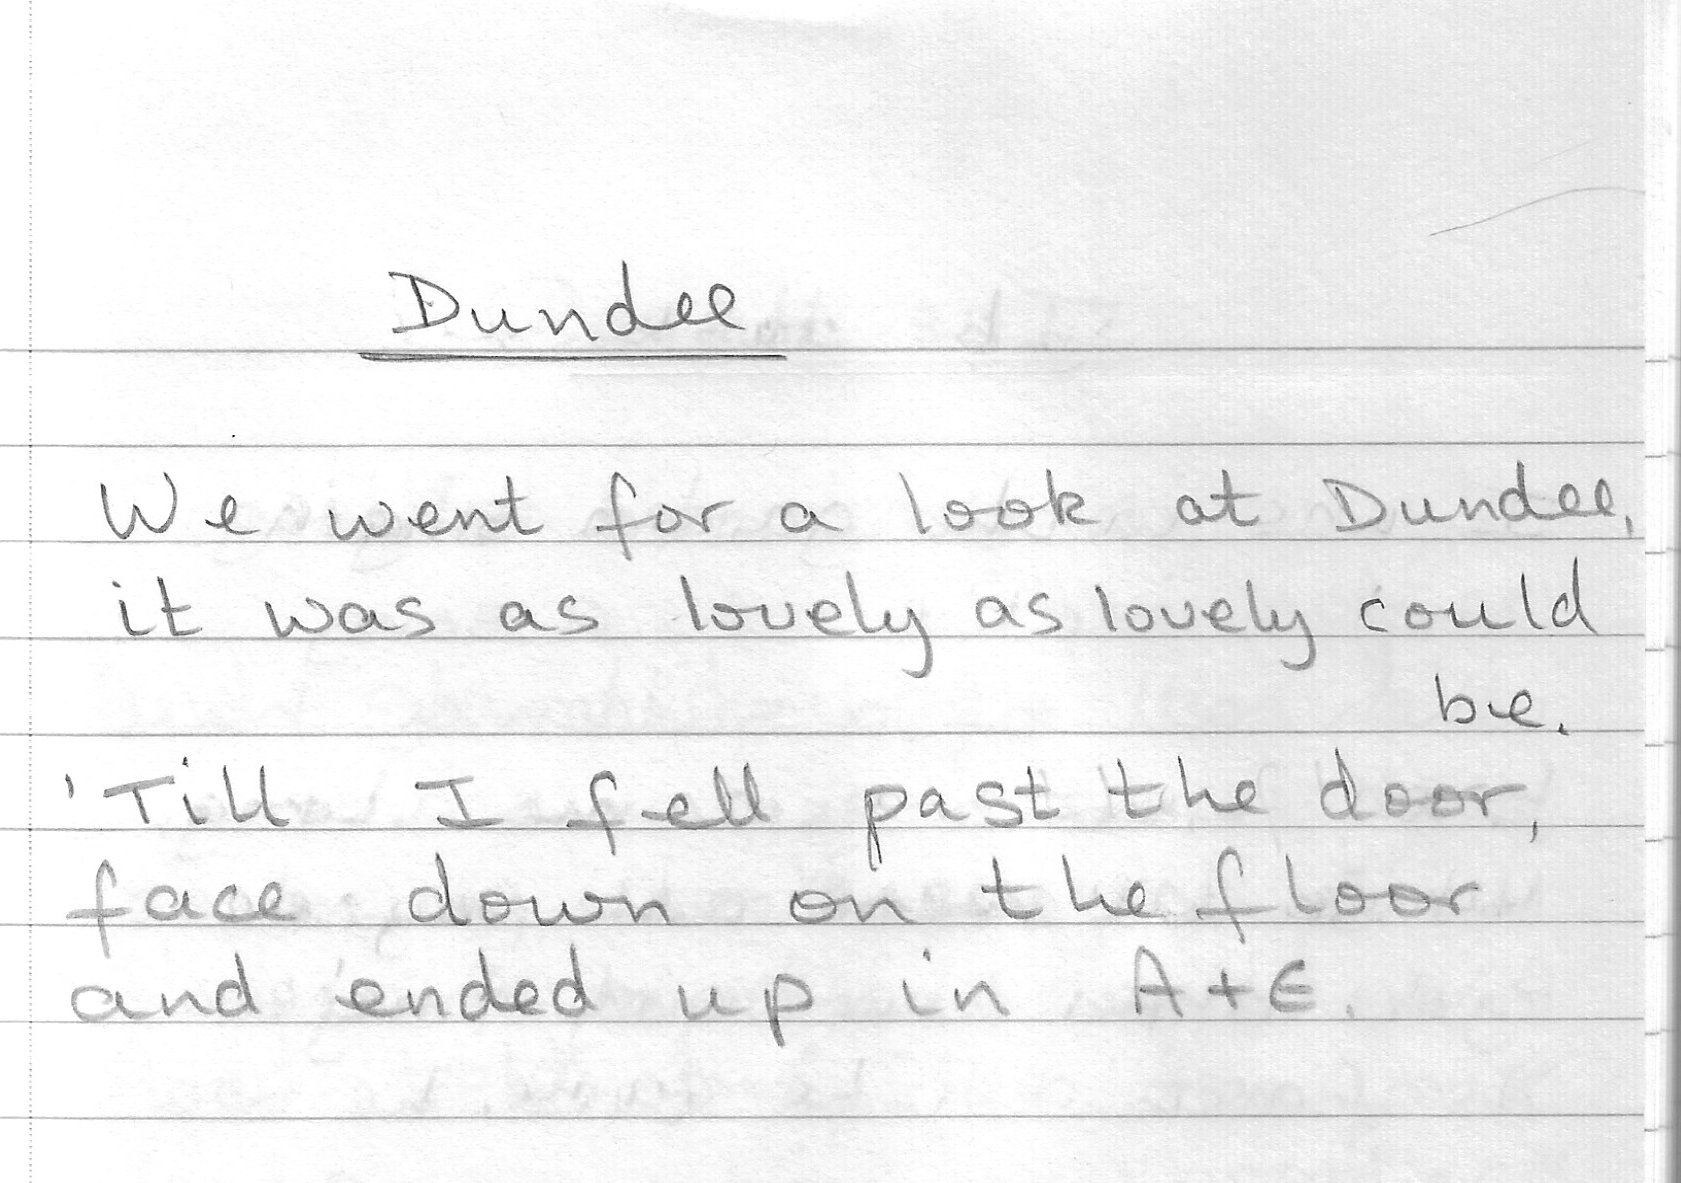 Dundee
We went for a look at Dundee,
it was as lovely as lovely could
be.
'Till I fell past the door,
face down on the floor
and ended up in A+E.